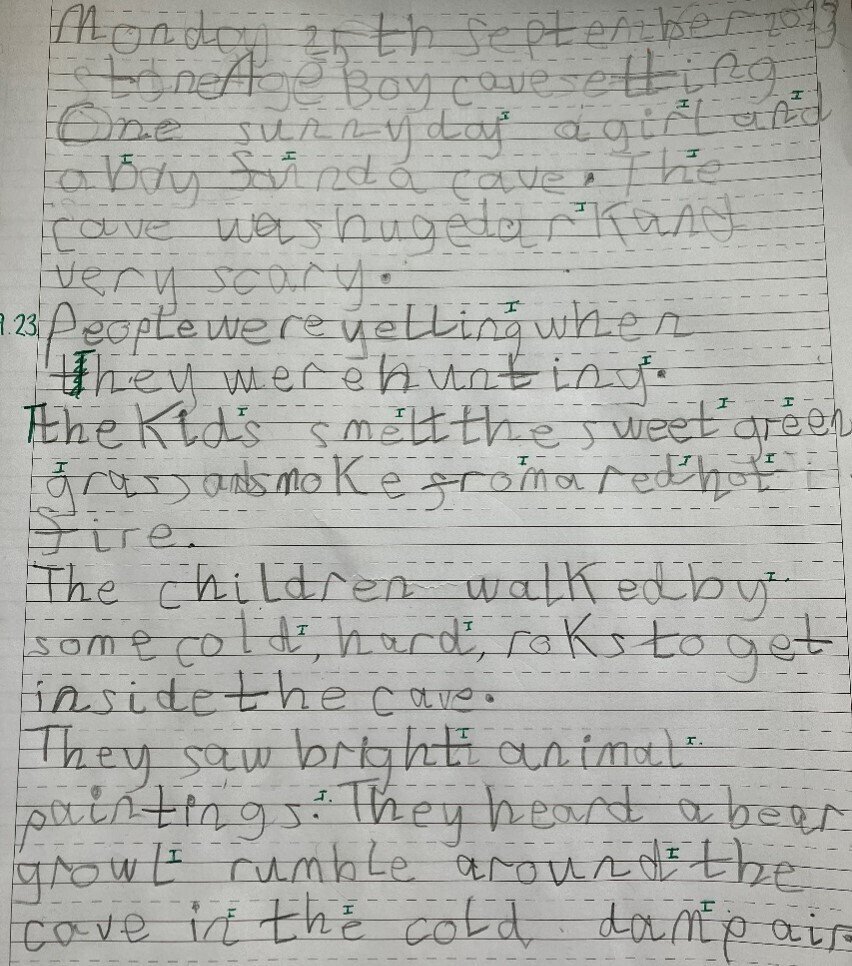 Monday 25th September 2023
stoneAge Boy cavesetting
One sunny day a girl and
a boy Faind a cave. The
cave was huge dark and
very scary.
9.23 People were yelling when
They were hunting.
The Kids smelt the sweet green
grass and smoke from a red hot
fire.
The children walked by
some cold, hard, roks to get
inside the cave.
They saw bright animal
paintings. They heard a bear
growl rumble around the
cave in the cold damp air.